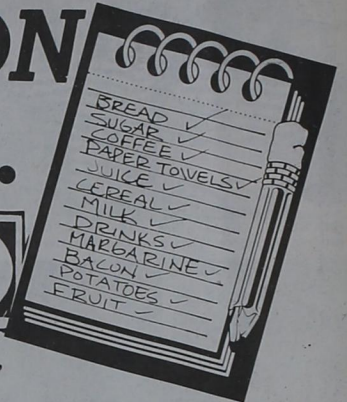 ON
BREAD ✓
SUGAR ✓
COFFEE ✓
PAPER TOWELS ✓
JUICE ✓
CEREAL ✓
MILK ✓
DRINKS ✓
MARGARINE ✓
BACON ✓
POTATOES ✓
FRUIT ✓